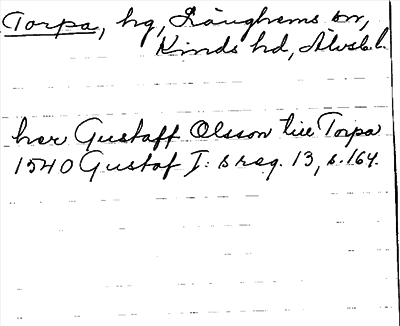 Torpa, hg, Länghems sn,
Kinds hd, Älvsb.l.
her Gustaff Olsson tiie Torpa
1540 Gustaf I:s reg. 13, s. 164.